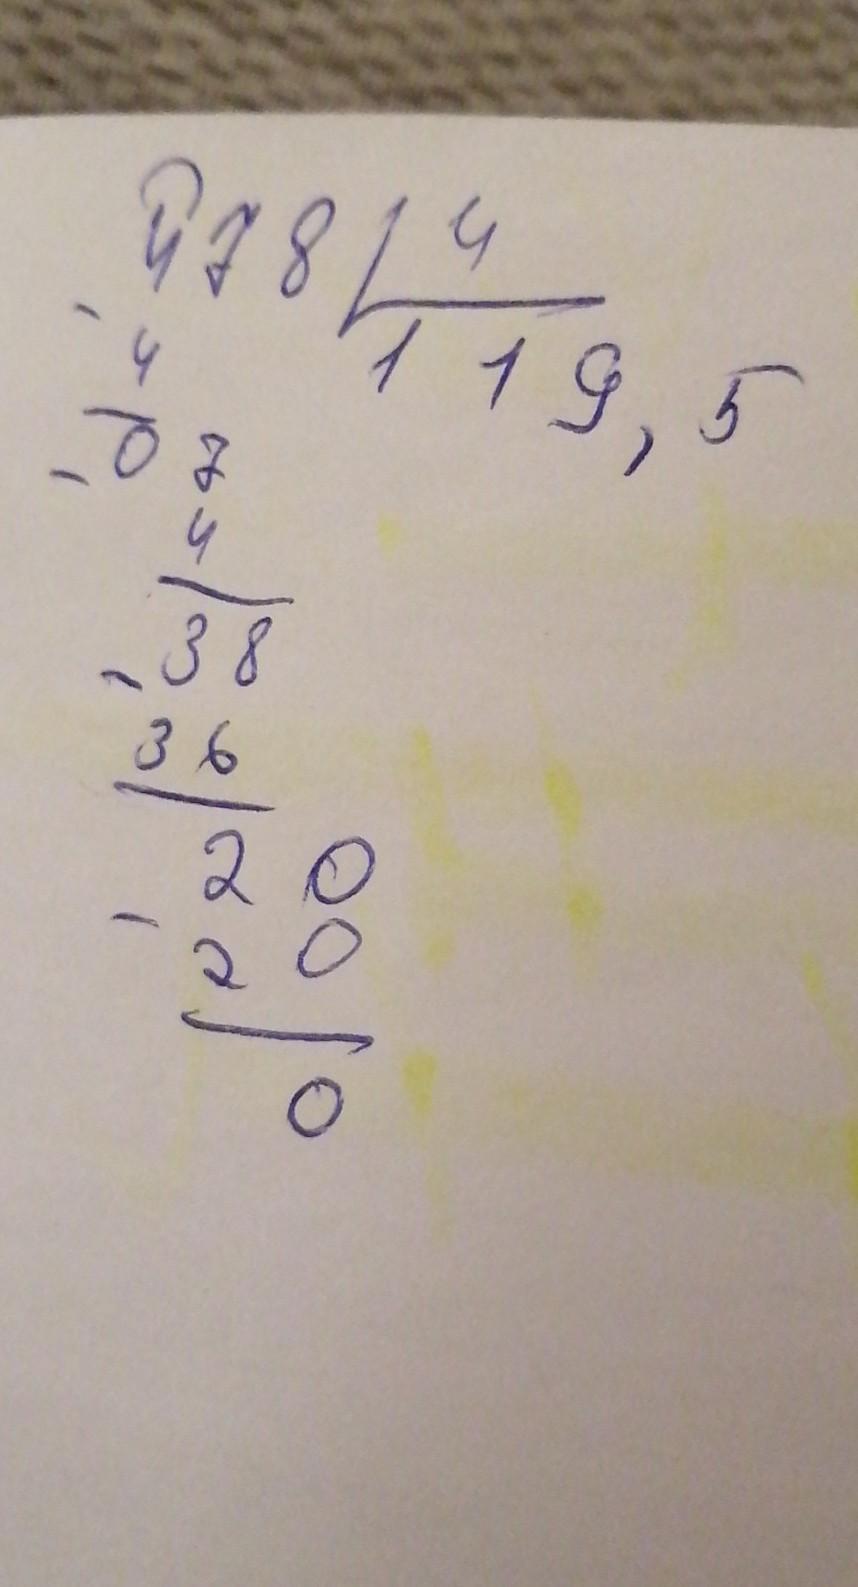 478 4
119,5
- 4
- 07
4
- 38
36
- 20
20
0